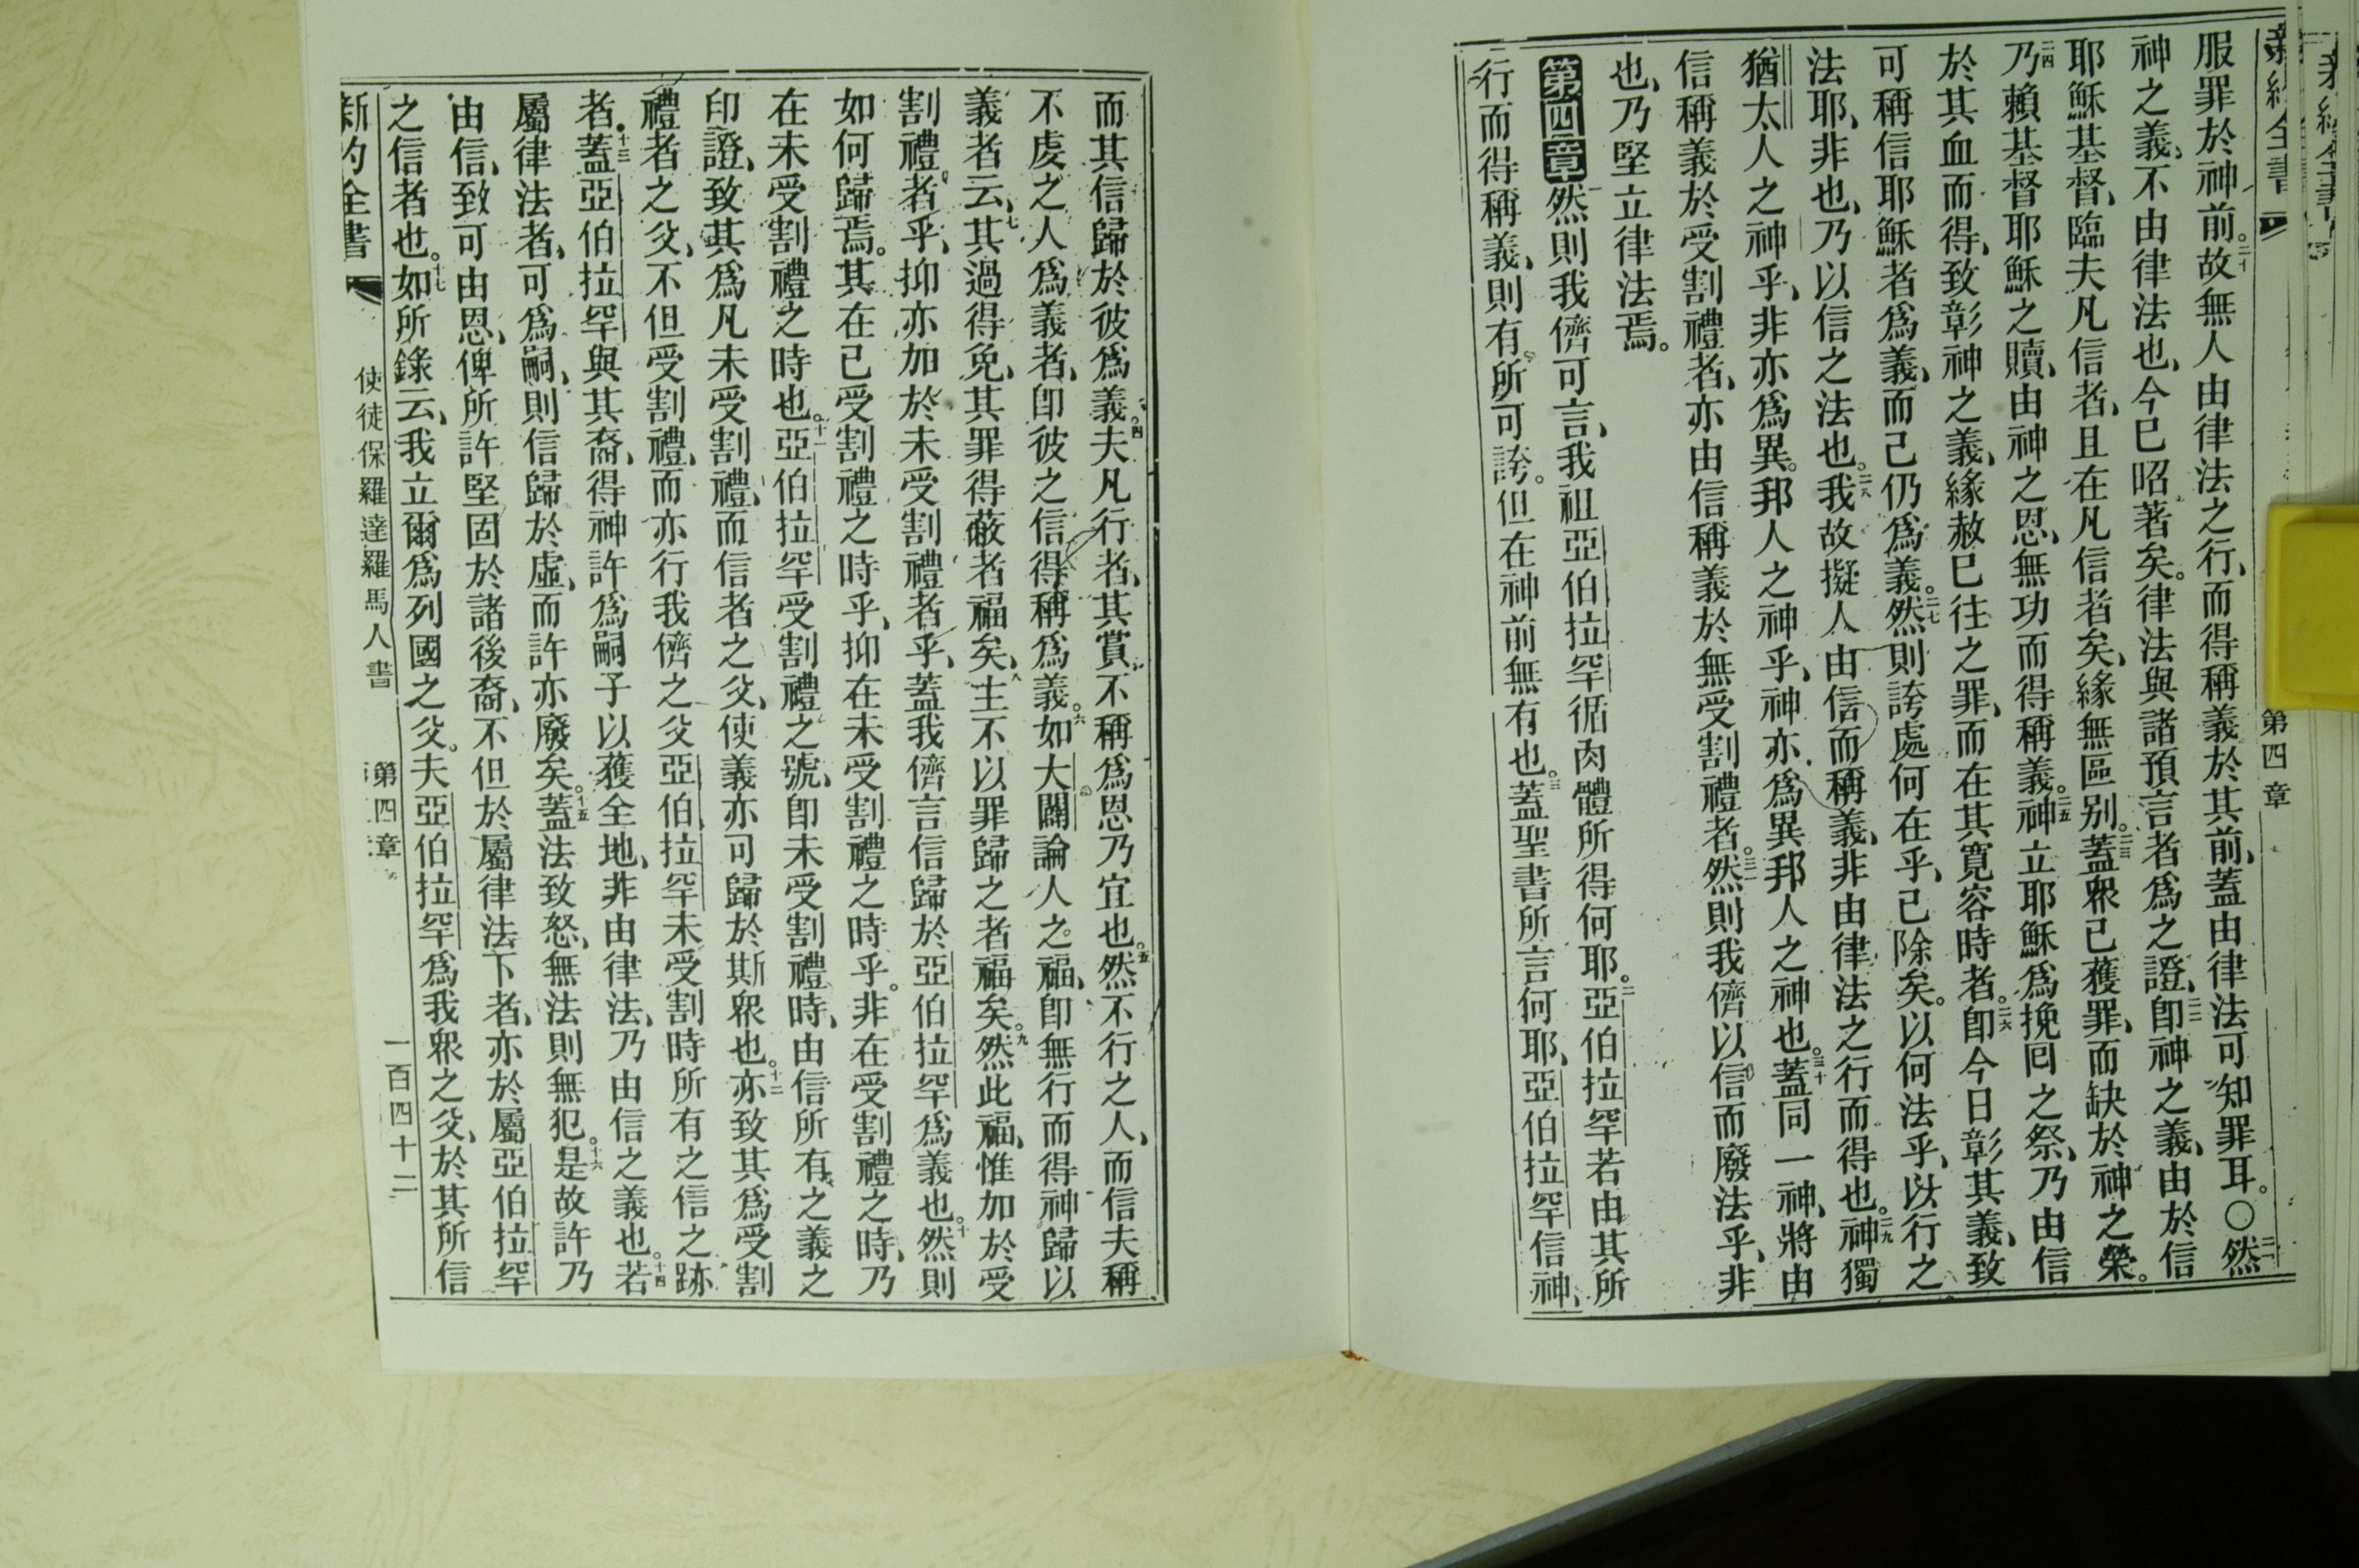 新約全書
第四章
服罪於神前。二十故無人由律法之行、而得稱義於其前、蓋由律法可知罪耳。〇二一然
神之義、不由律法也、今已昭著矣。律法與諸預言者爲之證、二二卽神之義、由於信
耶穌基督、臨夫凡信者、且在凡信者矣、緣無區別。二三蓋衆已獲罪、而缺於神之榮。
二四乃賴基督耶穌之贖、由神之恩、無功而得稱義。二五神立耶穌爲挽囘之祭、乃由信
於其血而得、致彰神之義、緣赦已往之罪、而在其寬容時者。二六卽今日彰其義、致
可稱信耶穌者爲義、而己仍爲義。二七然則誇處何在乎、已除矣。以何法乎、以行之
法耶、非也、乃以信之法也。二八我故擬人由信而稱義、非由律法之行而得也。二九神獨
猶太人之神乎、非亦爲異邦人之神乎、神亦爲異邦人之神也。三十蓋同一神、將由
信稱義於受割禮者、亦由信稱義於無受割禮者。三一然則我儕以信而廢法乎、非
也、乃堅立律法焉。
第四章然則我儕可言、我祖亞伯拉罕循肉體所得何耶。二亞伯拉罕若由其所
行而得稱義、則有所可誇。但在神前無有也。三蓋聖書所言何耶、亞伯拉罕信神、
而其信歸於彼爲義。四夫凡行者、其賞不稱爲恩乃宜也。五然不行之人、而信夫稱
不虔之人爲義者、卽彼之信得稱爲義。六如大闢論人之福、卽無行而得神歸以
義者云、七其過得免、其罪得蔽者福矣、八主不以罪歸之者福矣。九然此福、惟加於受
割禮者乎、抑亦加於未受割禮者乎、蓋我儕言信歸於亞伯拉罕爲義也。十然則
如何歸焉。其在已受割禮之時乎、抑在未受割禮之時乎。非在受割禮之時、乃
在未受割禮之時也。十一亞伯拉罕受割禮之號、卽未受割禮時、由信所有之義之
印證、致其爲凡未受割禮、而信者之父、使義亦可歸於斯衆也。十二亦致其爲受割
禮者之父、不但受割禮、而亦行我儕之父亞伯拉罕未受割時所有之信之跡
者。十三蓋亞伯拉罕與其裔、得神許爲嗣子以獲全地、非由律法、乃由信之義也。十四若
屬律法者、可爲嗣、則信歸於虛、而許亦廢矣。十五蓋法致怒、無法則無犯。十六是故許乃
由信、致可由恩、俾所許堅固於諸後裔、不但於屬律法下者、亦於屬亞伯拉罕
之信者也。十七如所錄云、我立爾爲列國之父。夫亞伯拉罕爲我衆之父、於其所信
新約全書
使徒保羅達羅馬人書
第四章
一百四十二